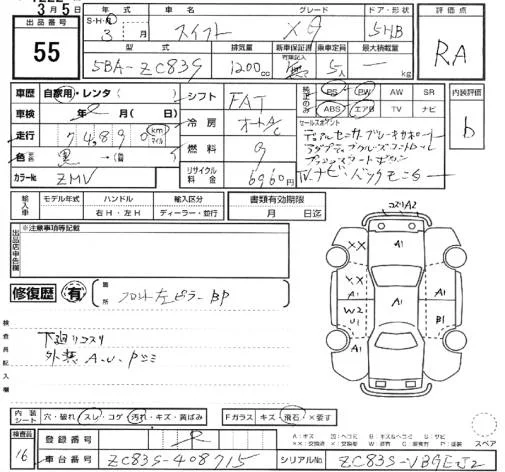 3月5日
出品番号
55
年 式
車 名
グレード
ドア・形状
評価点
S・H・R
3
月
スイフト
XG
5HB
RA
型 式
排気量
新車保証書
有・記入
無
乗車定員
最大積載量
5BA-ZC83S
1200cc
5人
kg
車歴 自家用・レンタ( )
車検 年 月( 日)
走行 7 4 8 9 0 km マイル
色 黒 →( 替)
カラーNo. ZMV
シフト FAT
冷房 オートA/C
燃料 G
リサイクル料金 6960円
純正のみ
PS PW AW SR
ABS エアB TV ナビ
内装評価
b
セールスポイント
デュアルセンサーブレーキサポート
アダプティブクルーズコントロール
プッシュスタートボタン
TV.ナビ・バックモニター
輸入車
モデル年式
ハンドル
輸入区分
右H・左H
ディーラー・並行
書類有効期限
月 日迄
出品店申告欄
※注意事項等記載
修復歴 有
箇所
フロント左ピラーBP
検査員記入欄
下廻りコスリ
外装 A.U.P ミミ
コスリA2
A1
XX
A1
XX
A1
A1
A1
W2
U1
B1
A1
内装シート
穴・破れ スレ・コゲ 汚れ・キズ・黄ばみ
Fガラス キズ・飛石・×要す
検査員
16
登録番号
車台番号 ZC83S-408715
シリアルNo. ZC83S-VBGE-J2
スペア